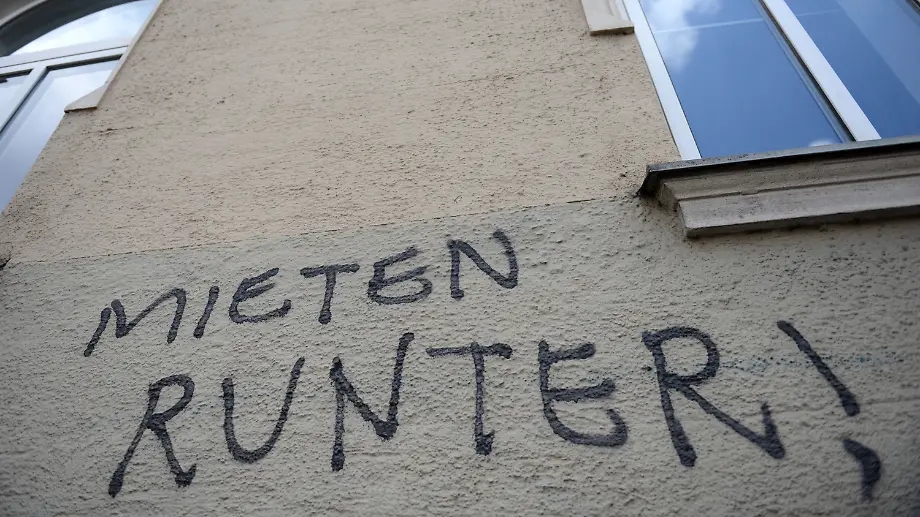 MIETEN
RUNTER!